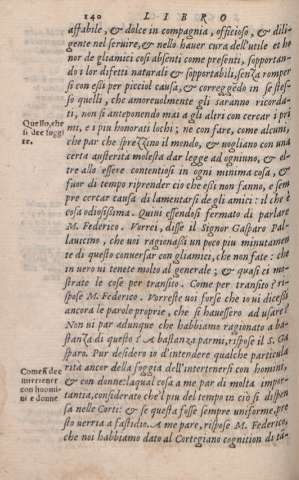 140 LIBRO
affabile, & dolce in compagnia, officioso, & dili-
gente nel seruire, & nello hauer cura dell'utile et ho
nor de gliamici cosi absenti come presenti, sopportan-
do i lor difetti naturali & sopportabili, senza romper
si con essi per picciol causa, & correggẽdo in se stes-
so quelli, che amoreuolmente gli saranno ricorda-
ti, non si anteponendo mai a gli altri con cercar i pri
Quello, che
si dee fuggi
re.
mi, e i piu honorati lochi; ne con fare, come alcuni,
che par che sprezzino il mondo, & uogliano con una
certa austerità molesta dar legge ad ogniuno, & ol-
tre allo essere contentiosi in ogni minima cosa, &
fuor di tempo riprender cio che essi non fanno, e sem
pre cercar causa di lamentarsi de gli amici: il che è
cosa odiosissima. Quiui essendosi fermato di parlare
M. Federico. Vorrei, disse il Signor Gasparo Pal-
lauicino, che uoi ragionassi un poco piu minutamen
te di questo conuersar con gliamici, che non fate: che
in uero ui tenete molto al generale; & quasi ci mo-
strate le cose per transito. Come per transito? ri-
spose M. Federico. Vorreste uoi forse che io ui dicessi
ancora le parole proprie, che si hauessero ad usare?
Non ui par adunque che habbiamo ragionato a ba-
stanza di questo? A bastanza parmi, rispose il S. Ga
sparo. Pur desidero io d'intendere qualche particula
Come si dee
intertenere
con huomi
ni e donne
rità ancor della foggia dell'intertenersi con homini,
& con donne: laqual cosa a me par di molta impor-
tantia, considerato che'l piu del tempo in ciò si dispen
sa nelle Corti: & se questa fosse sempre uniforme, pre
sto uerria a fastidio. A me pare, rispose M. Federico,
che noi habbiamo dato al Cortegiano cognition di tã-